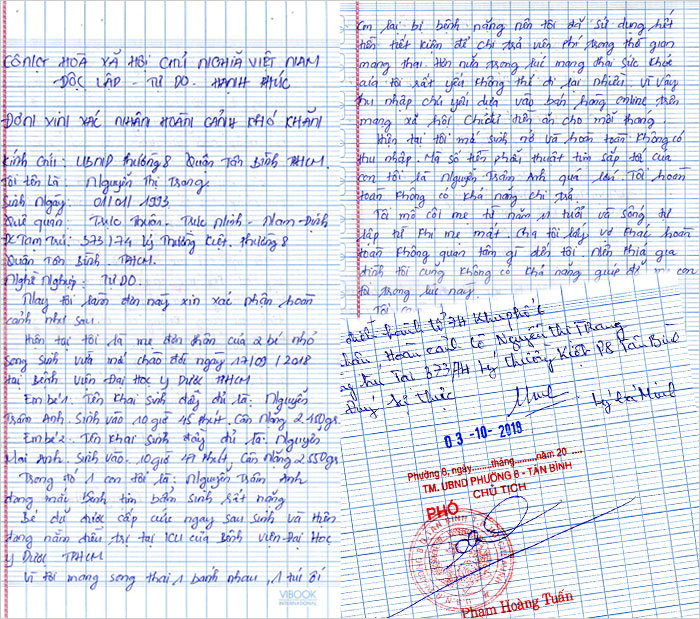 CỘNG HOÀ XÃ HỘI CHỦ NGHĨA VIỆT NAM
ĐỘC LẬP - TỰ DO - HẠNH PHÚC
ĐƠN XIN XÁC NHẬN HOÀN CẢNH KHÓ KHĂN
Kính Gửi: UBND Phường 8 Quận Tân Bình TPHCM.
Tôi tên Là Nguyễn Thị Trang.
Sinh Ngày: 01/01/1993
Quê quán: Trực Thuận. Trực Ninh. Nam Định
ĐC Tạm Trú: 373/74 Lý Thường Kiệt. Phường 8
Quận Tân Bình. TPHCM.
Nghề Nghiệp: Tự Do.
Nay tôi làm đơn này xin xác nhận hoàn
cảnh như sau.
Hiện tại tôi là mẹ đơn thân của 2 bé nhỏ
song sinh vừa mới chào đời ngày 17/09/2018
tại Bệnh viện Đại Học y Dược TPHCM
Em bé 1. Tên khai sinh đầy đủ là: Nguyễn
Trâm Anh. Sinh vào 10 giờ 45 phút. Cân Nặng 2.450gr.
Em bé 2. Tên khai sinh đầy đủ là: Nguyễn
Mai Anh. Sinh vào. 10 giờ 47 phút. Cân Nặng 2550gr.
Trong đó 1 con tôi là, Nguyễn Trâm Anh
đang mắc bệnh tim bẩm sinh rất nặng
Bé đã được cấp cứu ngay sau sinh và Hiện
đang nằm điều trị tại ICU của Bệnh viện Đại Học
y Dược TPHCM
Vì tôi mang song thai 1 bánh nhau, 1 túi ối
VIBOOK
INTERNATIONAL
Con lại bị bệnh nặng nên tôi đã sử dụng hết
tiền tiết kiệm để chi trả viện phí trong thời gian
mang thai. Hơn nữa trong lúc mang thai sức khỏe
của tôi rất yếu không thể đi lại nhiều. vì vậy
thu nhập chủ yếu dựa vào bán hàng online trên
mạng xã hội Chỉ đủ tiền ăn cho mỗi tháng.
Hiện tại tôi mới sinh nở và hoàn toàn không có
thu nhập. Mà số tiền phẫu thuật tim sắp tới của
con tôi là Nguyễn Trâm Anh quá lớn. Tôi hoàn
toàn không có khả năng chi trả.
Tôi mồ côi mẹ từ năm 11 tuổi và sống tự
lập từ khi mẹ mất. Cha tôi lấy vợ khác hoàn
toàn không quan tâm gì đến tôi. Nên Phía gia
đình tôi cũng không có khả năng giúp đỡ mẹ con
tôi trong lúc này.
Tôi
tổ 7H Khu phố 6
Hoàn cảnh Cô Nguyễn Thị Trang
Tại 373/74 Lý Thường Kiệt P8 Tân Bình
Sự Thực
03-10-2018
Phường 8, ngày.......tháng.........năm 20.....
TM. UBND PHƯỜNG 8 - TÂN BÌNH
CHỦ TỊCH
PHÓ
Phạm Hoàng Tuấn